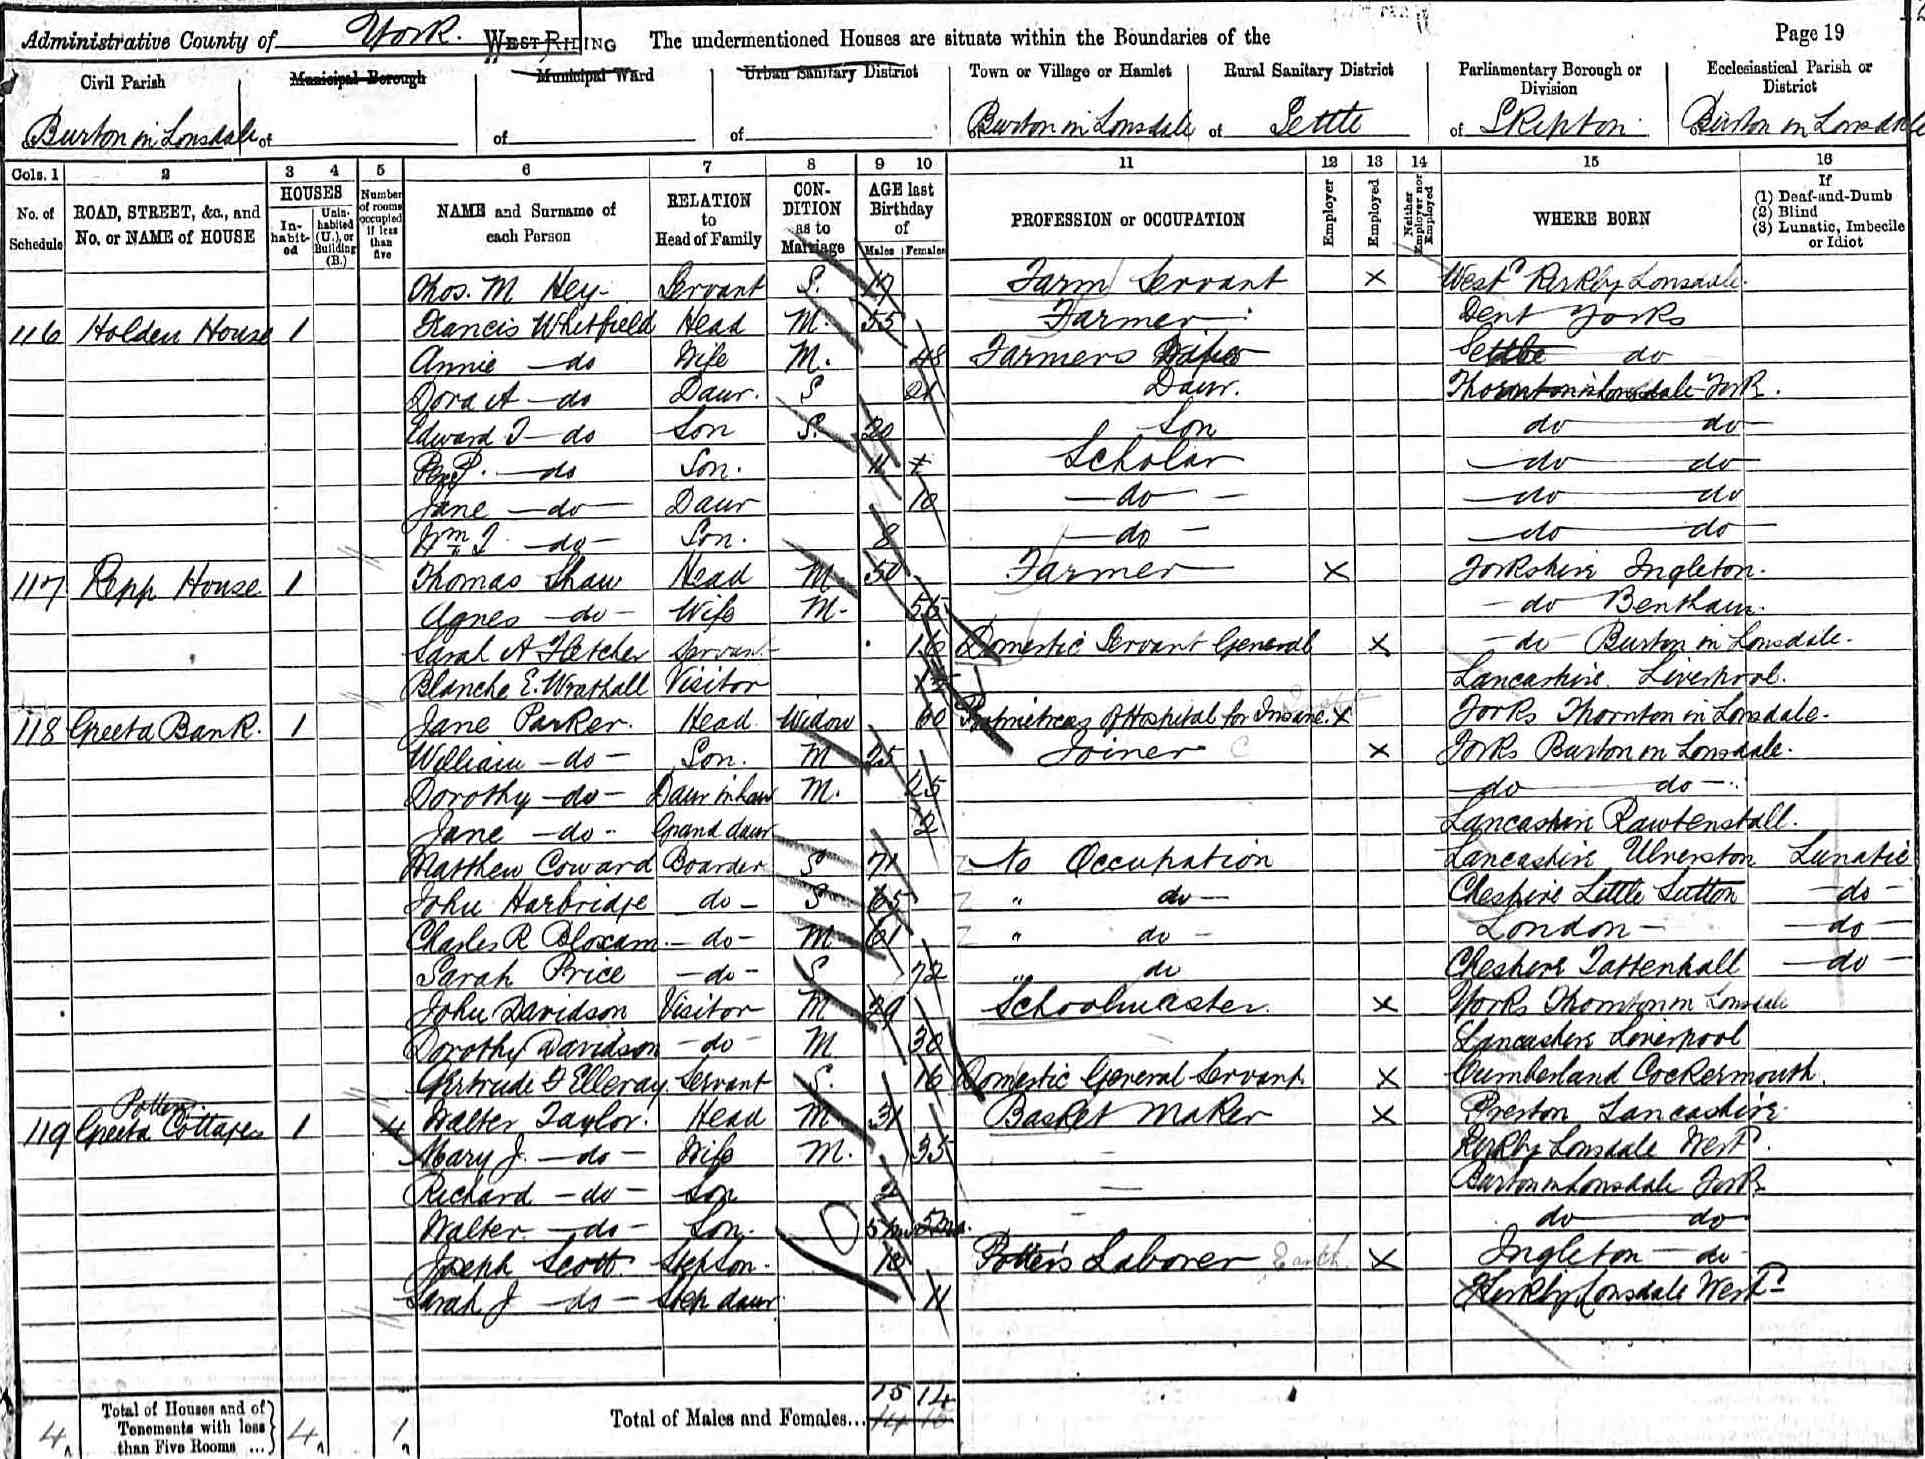 Administrative County of York. WEST RIDING The undermentioned Houses are situate within the Boundaries of the Page 19
Civil Parish Municipal Borough Municipal Ward Urban Sanitary District Town or Village or Hamlet Rural Sanitary District Parliamentary Borough or Division Ecclesiastical Parish or District
Burton in Lonsdale of of of Burton in Lonsdale of Settle of Skipton Burton in Lonsdale
Cols. 1 2 3 4 5 6 7 8 9 10 11 12 13 14 15 16
No. of Schedule ROAD, STREET, &c., and No. or NAME of HOUSE HOUSES Inhabited Uninhabited (U.), or Building (B.) Number of rooms occupied if less than five NAME and Surname of each Person RELATION to Head of Family CONDITION as to Marriage AGE last Birthday of Males Females PROFESSION or OCCUPATION Employer Employed Neither Employer nor Employed WHERE BORN If (1) Deaf-and-Dumb (2) Blind (3) Lunatic, Imbecile or Idiot
Thos. M Hey Servant S. 17 Farm Servant X Westd Kirkby Lonsdale.
116 Holden House 1 Francis Whitfield Head M. 55 Farmer Dent Yorks
Annie do Wife M. 48 Farmers Settle do
Dora A do Daur. S 21 Daur. Thornton in Lonsdale York.
Edward T do Son S. 20 Son do do
do Son. 11 Scholar do do
Jane do Daur 10 do do do
Wm T. do Son. 8 do do do
117 Repp House 1 Thomas Shaw Head M. 50 Farmer X Yorkshire Ingleton.
Agnes do Wife M. 55 do Bentham.
Sarah A Fletcher Servant 16 Domestic Servant General X do Burton in Lonsdale.
Blanche E. Wrathall Visitor Lancashire Liverpool.
118 Greeta Bank. 1 Jane Parker. Head Widow 60 Proprietress of Hospital for Insane. X Yorks Thornton in Lonsdale.
William do Son. M 25 Joiner X Yorks Burton in Lonsdale.
Dorothy do Daur in law M. 25 do do
Jane do Grand daur 2 Lancashire Rawtenstall.
Matthew Coward Boarder S 71 No Occupation Lancashire Ulverston Lunatic
John Harbridge do S 65 " do Cheshire Little Sutton do
Charles R Bloxam do M 61 " do London do
Sarah Price do S 72 " do Cheshire Tattenhall do
John Davidson Visitor M 29 Schoolmaster. X Yorks Thornton in Lonsdale
Dorothy Davidson do M 30 Lancashire Liverpool
Gertrude Elleray Servant S. 16 Domestic General Servant. X Cumberland Cockermouth.
119 Greeta Cottages 1 4 Walter Taylor. Head M 31 Basket Maker X Preston Lancashire.
Mary J. do Wife M. 35 Kirkby Lonsdale Westd.
Richard do Son 2 Burton in Lonsdale York
Walter do Son. 5 mo 5 mo. do do
Joseph Scott Stepson. 18 Potter's Laborer Earth X Ingleton do
Sarah J do Step daur. 11 Kirkby Lonsdale Westd
4 Total of Houses and of Tenements with less than Five Rooms ... 4 1 Total of Males and Females... 15 14
14 15